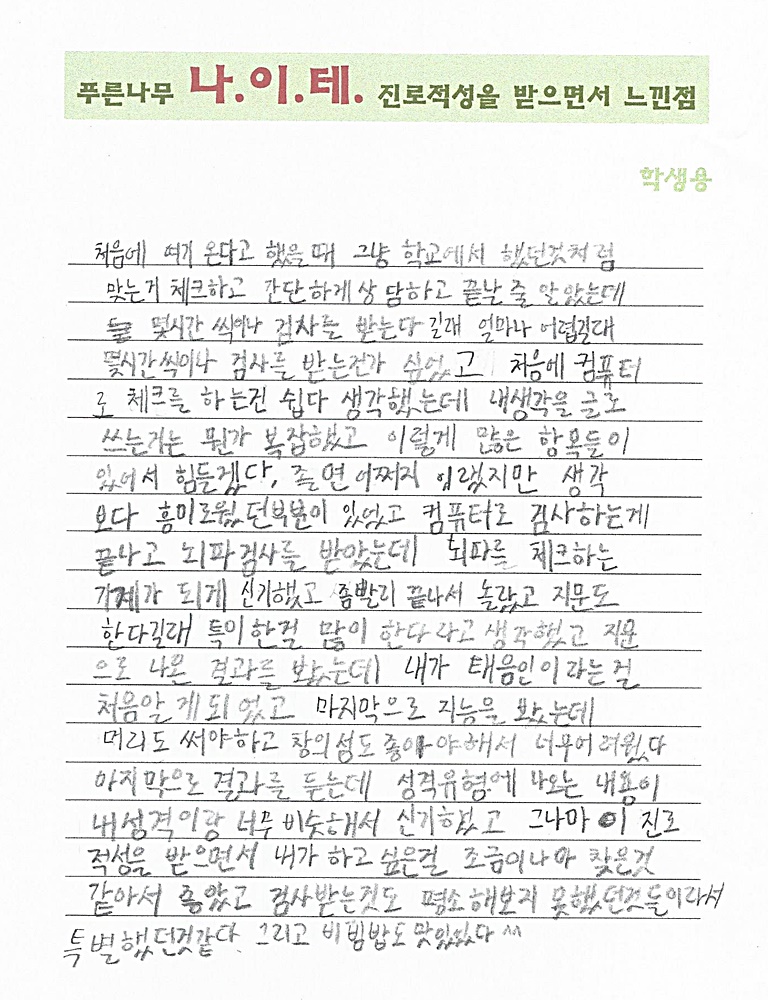 푸른나무 나.이.테. 진로적성을 받으면서 느낀점
학생용
처음에 여기 온다고 했을 때 그냥 학교에서 했던것처럼
맞는거 체크하고 간단하게 상담하고 끝날 줄 알았는데
몇시간 씩이나 검사를 받는다길래 얼마나 어렵길래
몇시간씩이나 검사를 받는건가 싶었고 처음에 컴퓨터
로 체크를 하는건 쉽다 생각했는데 내생각을 글로
쓰는거는 뭔가 복잡했고 이렇게 많은 항목들이
있어서 힘들겠다, 졸면 어쩌지 이랬지만 생각
보다 흥미로웠던부분이 있었고 컴퓨터로 검사하는게
끝나고 뇌파검사를 받았는데 뇌파를 체크하는
기계가 되게 신기했고 좀빨리 끝나서 놀랐고 지문도
한다길래 특이한걸 많이 한다라고 생각했고 지문
으로 나온 결과를 봤는데 내가 태음인이라는걸
처음알게되었고 마지막으로 지능을 봤는데
머리도 써야하고 창의성도 좋아야해서 너무어려웠다
마지막으로 결과를 듣는데 성격유형에 나오는 내용이
내성격이랑 너무 비슷해서 신기했고 그나마 이 진로
적성을 받으면서 내가 하고싶은걸 조금이나마 찾은것
같아서 좋았고 검사받는것도 평소해보지 못했던것들이라서
특별했던것같다. 그리고 비빔밥도 맛있었다 ^^